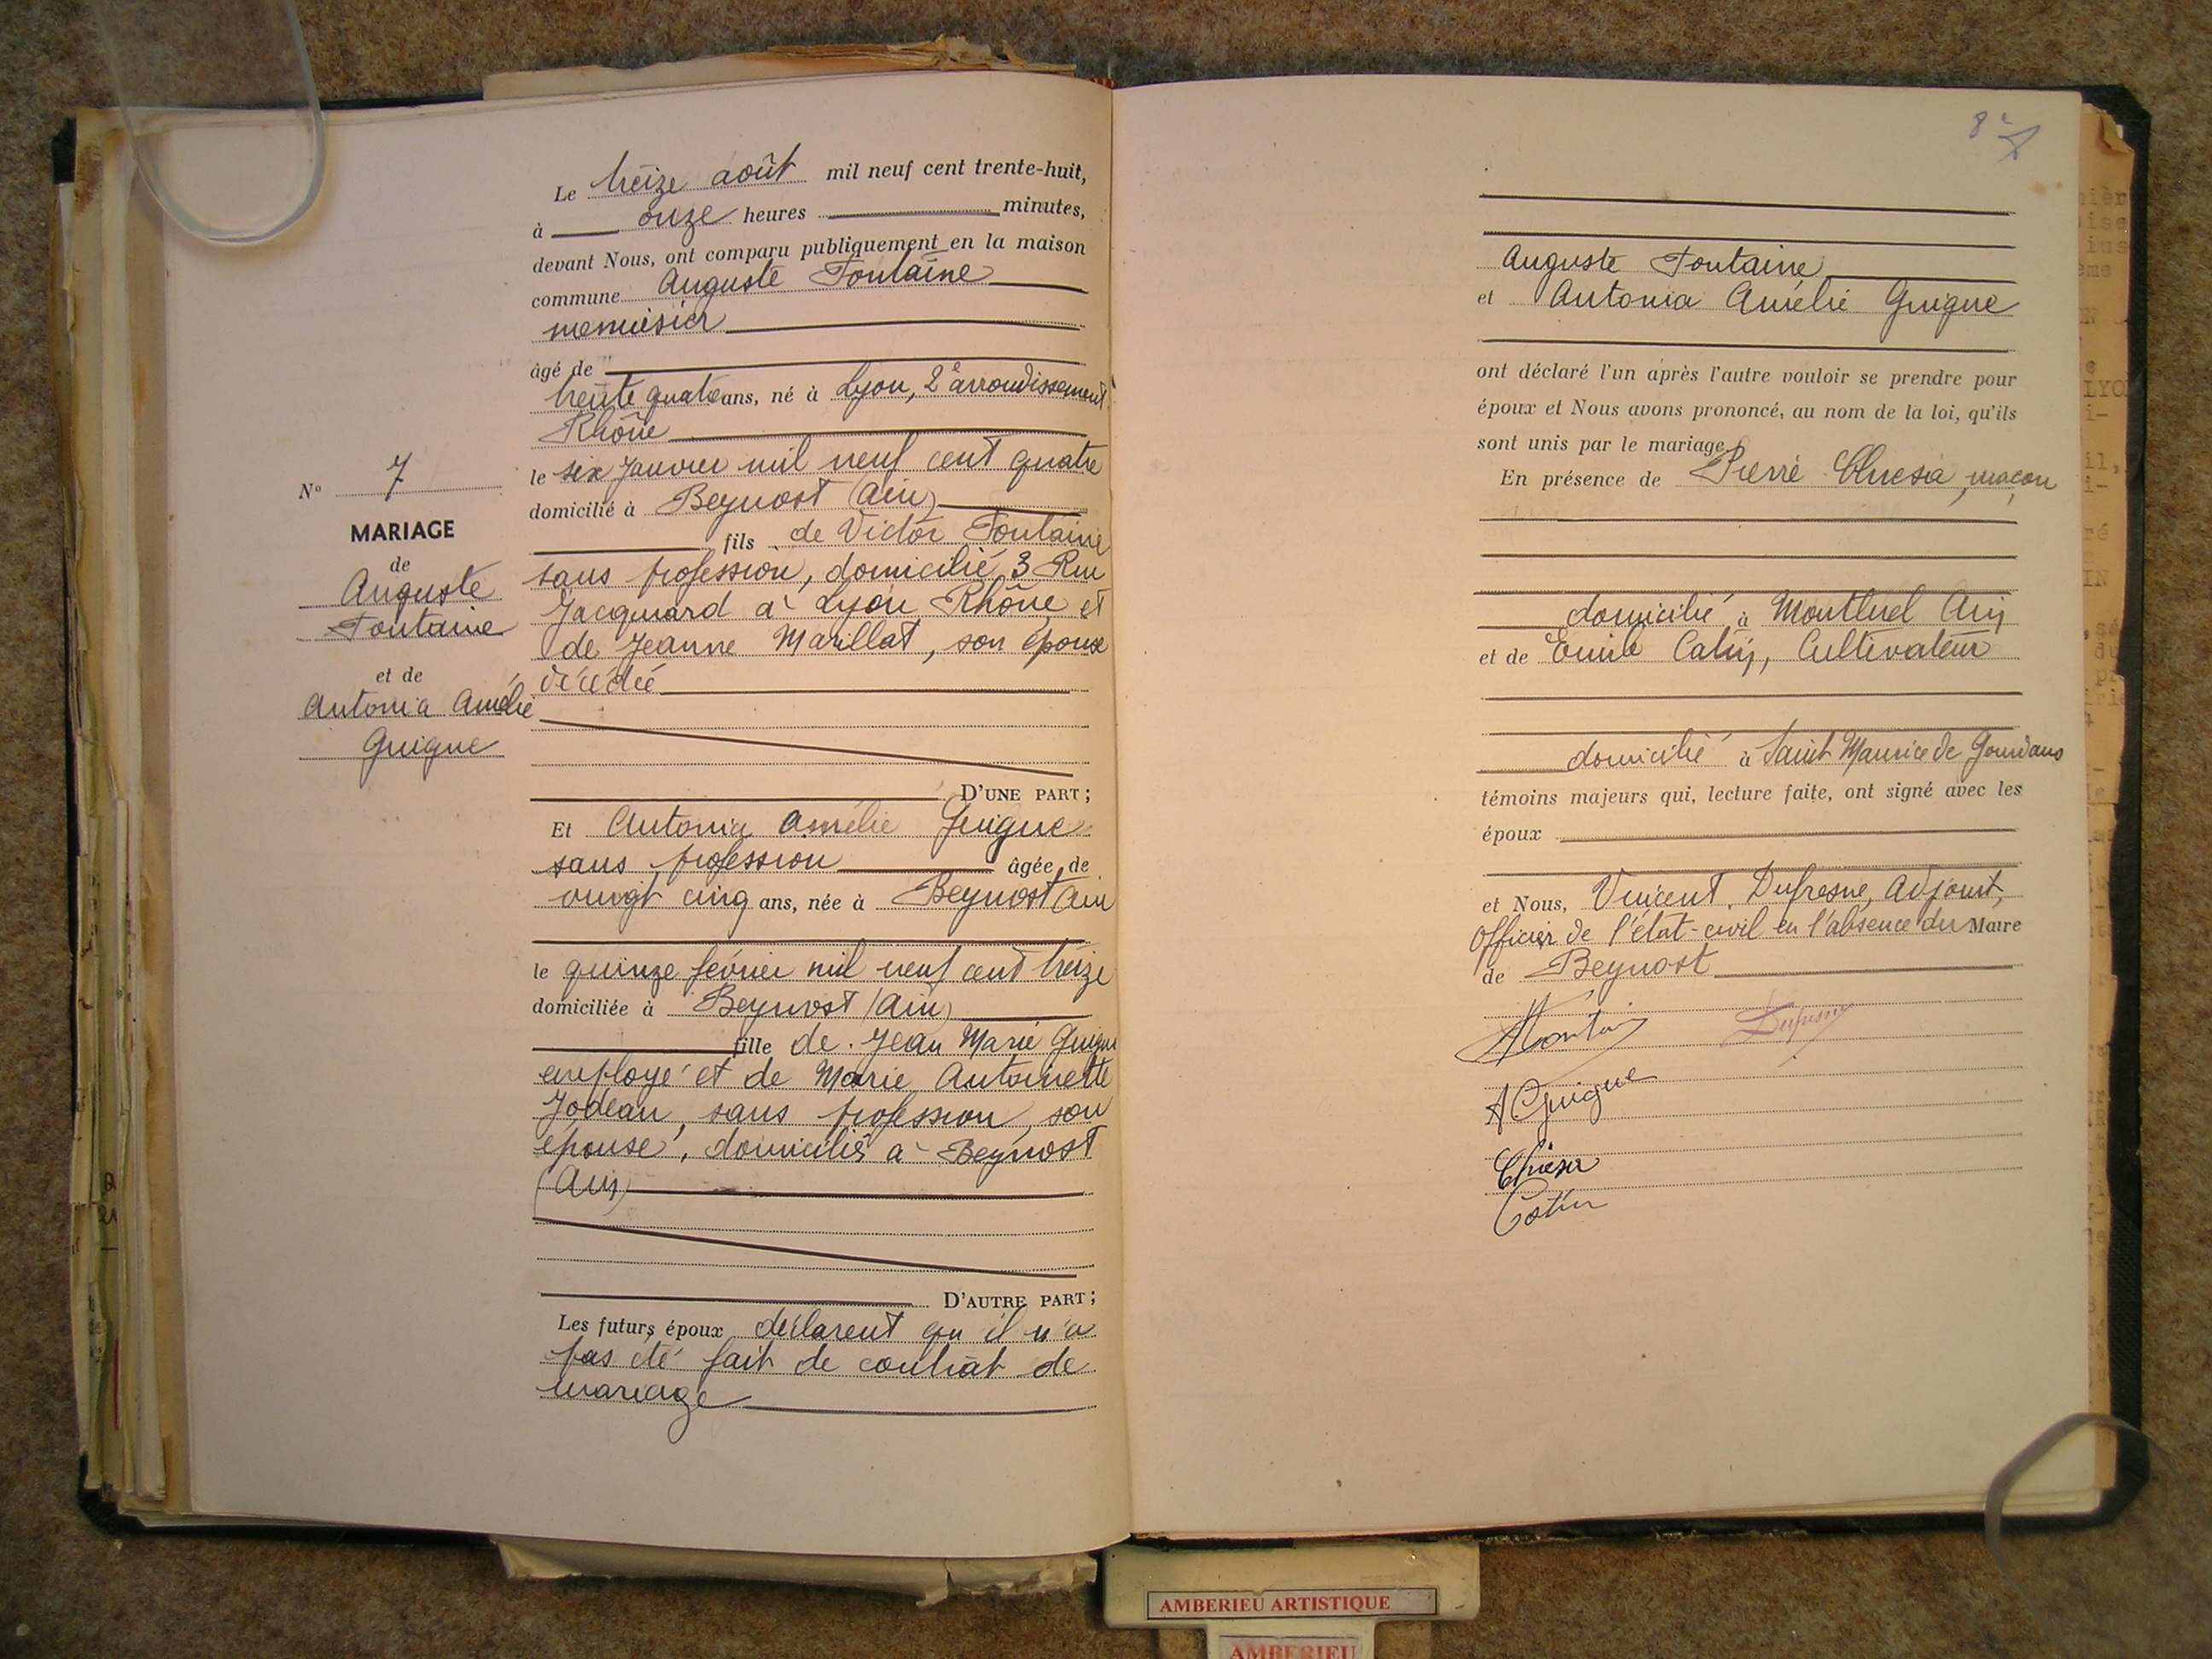 Le treize août mil neuf cent trente-huit,
à onze heures minutes,
devant Nous, ont comparu publiquement en la maison
commune Auguste Fontaine
menuisier
âgé de
trente quatre ans, né à Lyon, 2e arrondissement
Rhône
le six Janvier mil neuf cent quatre
domicilié à Beynost (Ain)
fils de Victor Fontaine
sans profession, domicilié 3 Rue
Jacquard à Lyon Rhône et
de Jeanne Marillat, son épouse
décédée
D'UNE PART ;
N° 7
MARIAGE
de
Auguste
Fontaine
et de
Antonia Amélie
Guigue
Et Antonia Amélie Guigue
sans profession âgée de
vingt cinq ans, née à Beynost Ain
le quinze février mil neuf cent treize
domiciliée à Beynost (Ain)
fille de Jean Marie Guigue
employé et de Marie Antoinette
Jodeau, sans profession, son
épouse, domiciliés à Beynost
(Ain)
D'AUTRE PART ;
Les futurs époux déclarent qu'il n'a
pas été fait de contrat de
mariage
8
Auguste Fontaine
et Antonia Amélie Guigue
ont déclaré l'un après l'autre vouloir se prendre pour
époux et Nous avons prononcé, au nom de la loi, qu'ils
sont unis par le mariage
En présence de Pierre Chiesa, maçon
domicilié à Montluel Ain
et de Emile Catin, Cultivateur
domicilié à Saint Maurice de Gourdans
témoins majeurs qui, lecture faite, ont signé avec les
époux
et Nous, Vincent Dufresne, Adjoint,
Officier de l'état-civil en l'absence du Maire
de Beynost
Dufresne
A Guigue
Chiesa
AMBERIEU ARTISTIQUE
AMBERIEU